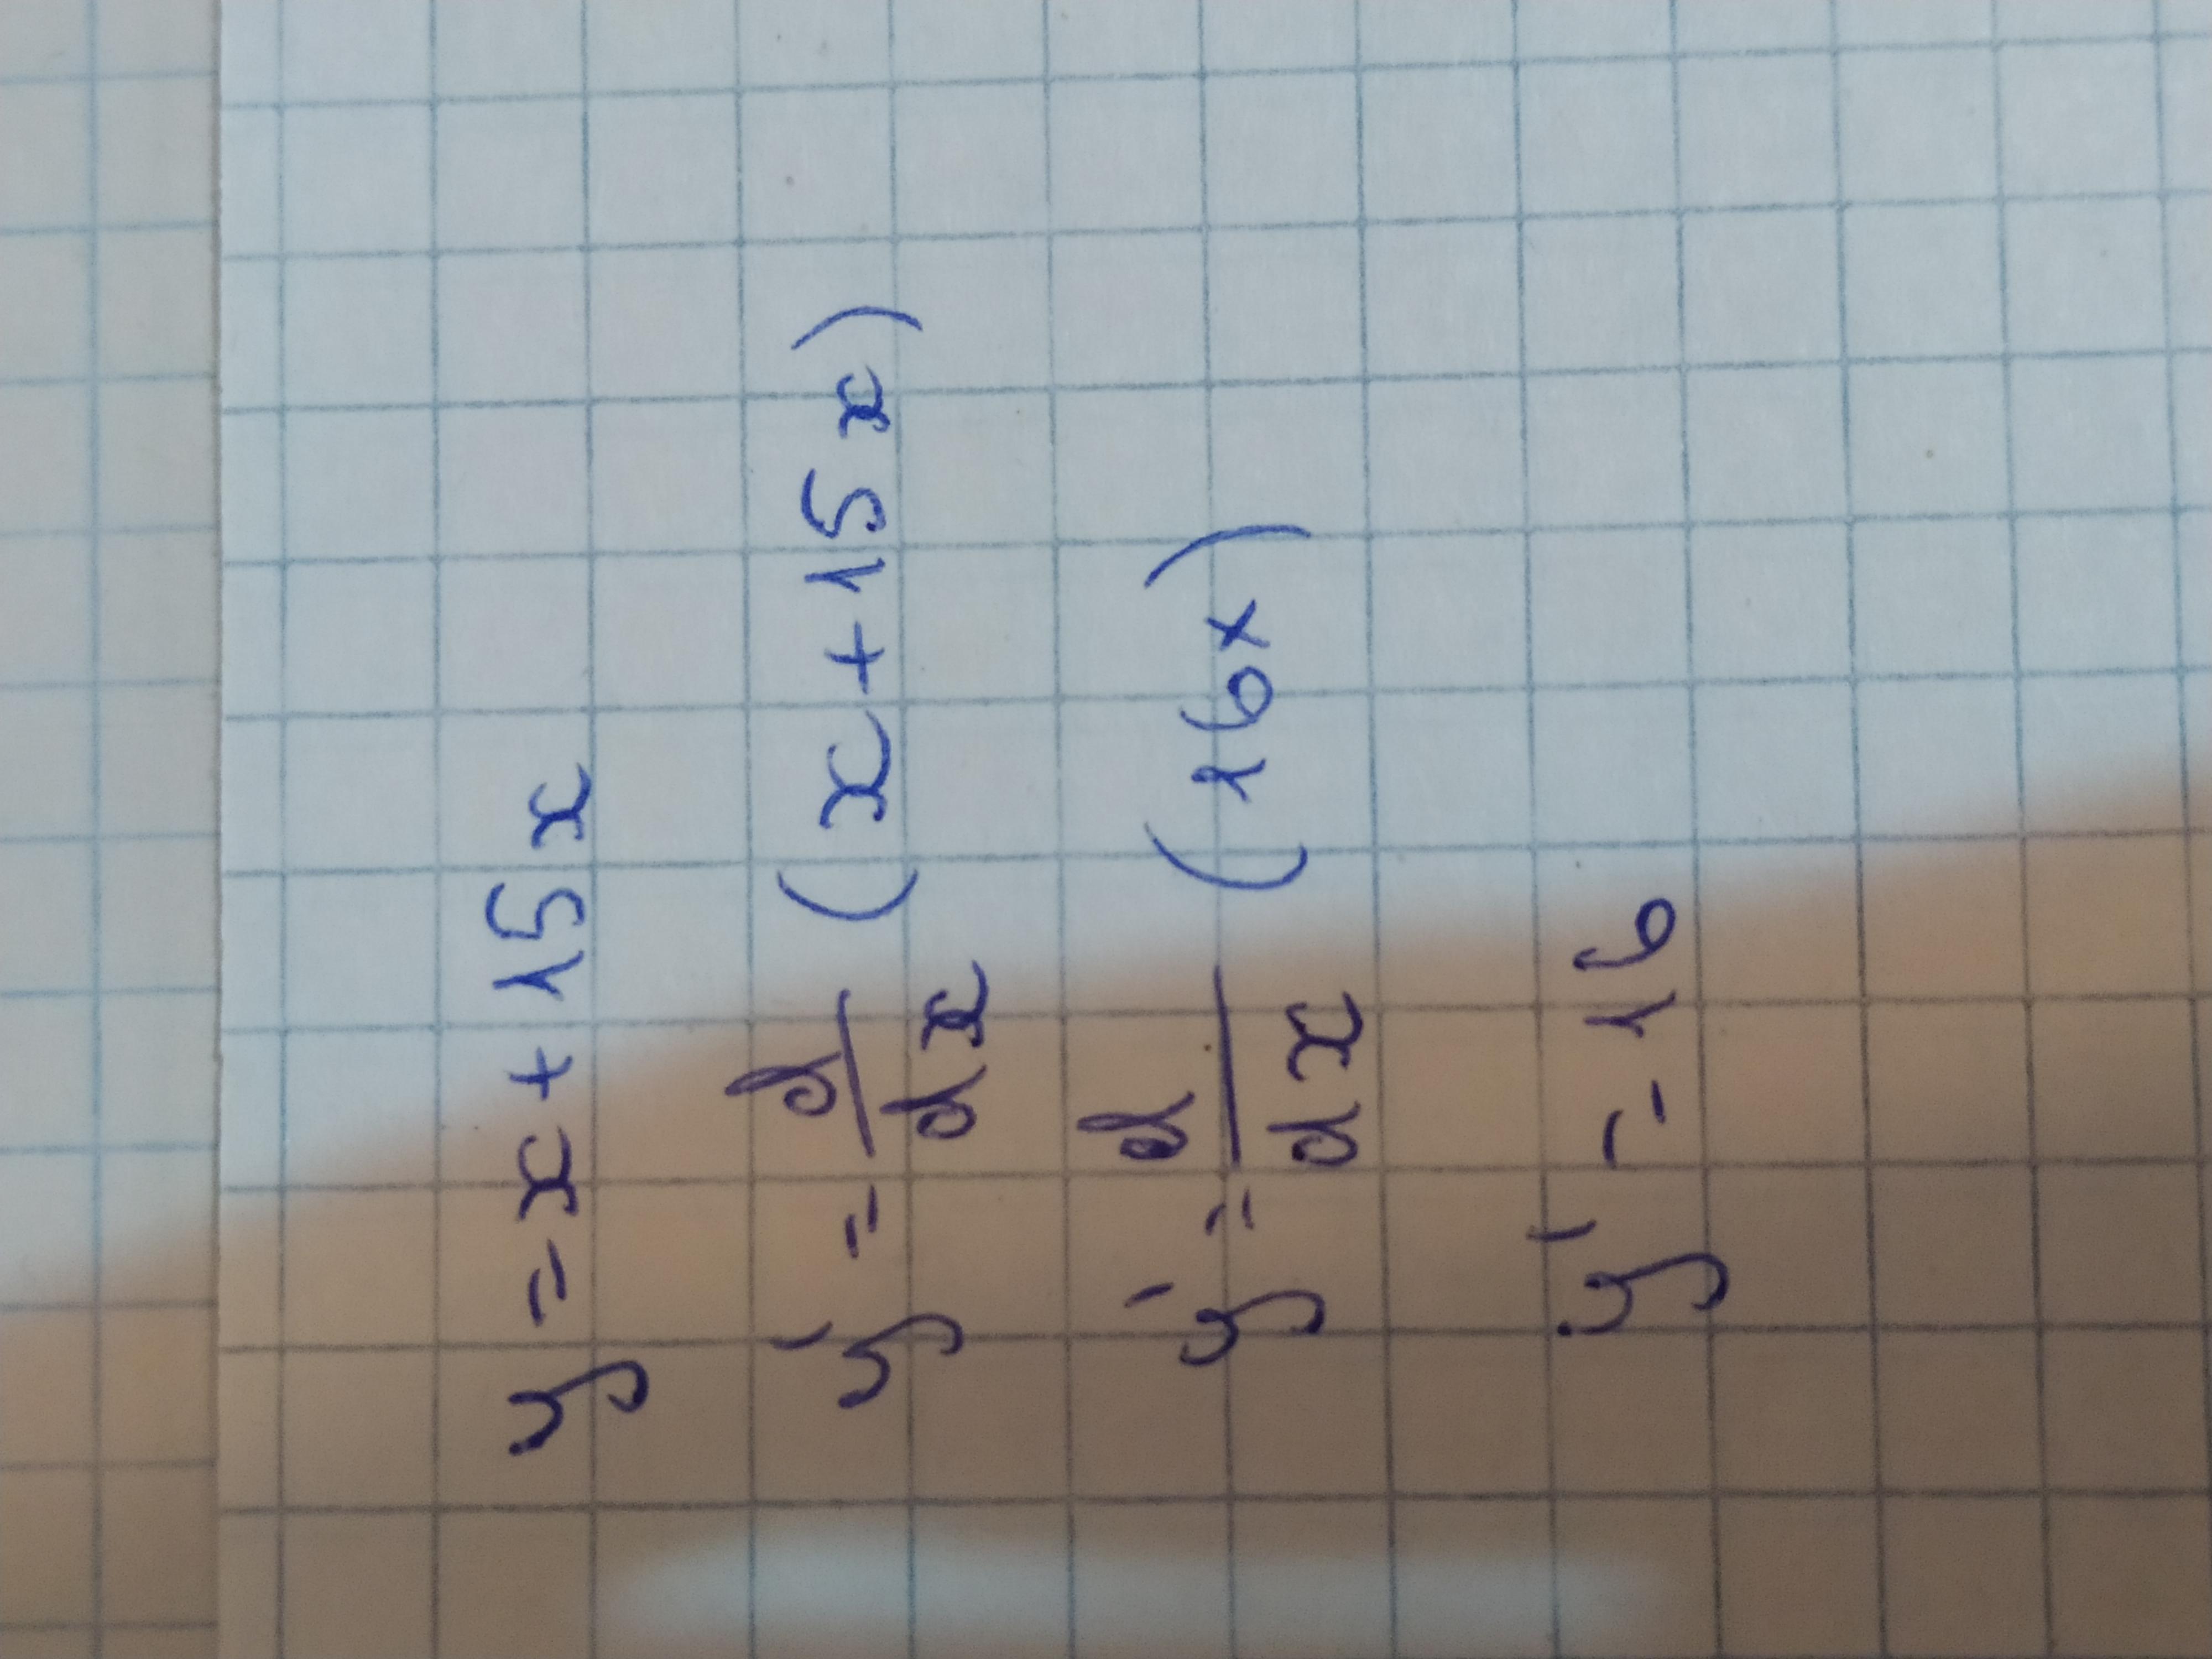 y = x + 15x
y' = d/dx (x + 15x)
y' = d/dx (16x)
y' = 16